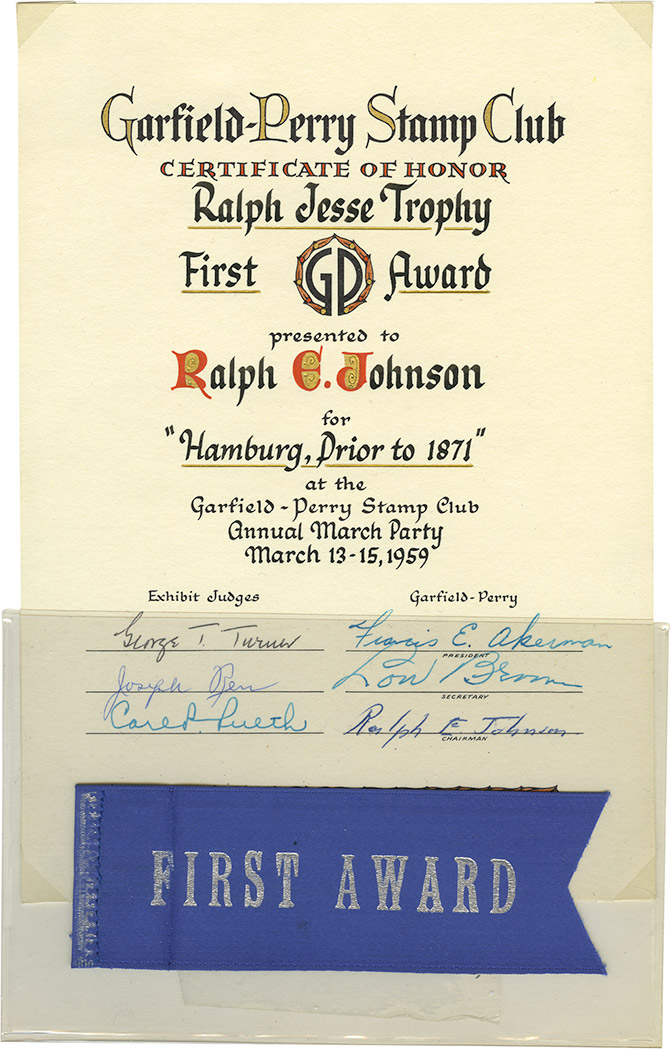 Garfield-Perry Stamp Club
CERTIFICATE OF HONOR
Ralph Jesse Trophy
First GP Award
presented to
Ralph E. Johnson
for
"Hamburg, Prior to 1871"
at the
Garfield-Perry Stamp Club
Annual March Party
March 13-15, 1959
Exhibit Judges Garfield-Perry
George T. Turner Francis E. Akerman
PRESIDENT
Joseph
SECRETARY
Ralph E. Johnson
CHAIRMAN
FIRST AWARD